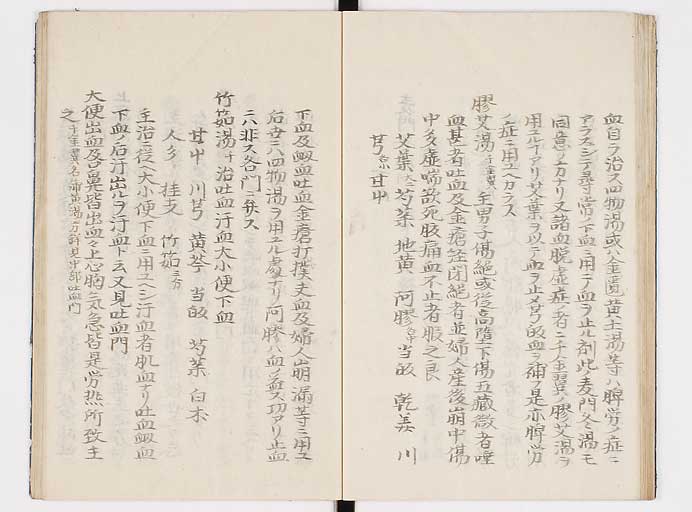 血自ラ治ス四物湯或ハ金匱黄土湯等ハ脾労ノ症ニ
アラスシテ尋常ノ下血ニ用テ血ヲ止ル剤此ノ麦門冬湯モ
同意ノカナリ又諸血脱虚症ノ者ニ千金翼ノ膠艾湯ヲ
用ユルコアリ艾葉ヲ以テ血ヲ止メ血ヲ補フ是亦脾労
ノ症ニ用ユヘカラス
膠艾湯 千金翼 主男子傷絶或従高堕下傷五臓微者唾
血甚者吐血及金瘡経閉絶者並婦人産後崩中傷
中多虚喘欲死腹痛血不止者服之良
艾葉 芍薬 地黄 阿膠 当皈 乾姜 川
芎 甘草
下血及衂血吐血金瘡打撲丈血及婦人崩漏等ニ用ユ
后世ハ四物湯ヲ用ユル処ナリ阿膠ハ血ノ益ス功アリ止血
ニハ非ス各門ニ弁ス
竹筎湯 千 治吐血汗血大小便下血
甘草 川芎 黄芩 当皈 芍薬 白朮
人参 桂支 竹筎
主治ニ従ヘ大小便下血ニ用ユヘシ汗血者肌血ナリ吐血衂血
下血ノ后汗出ルヲ汗血ト云又見吐血門
大便出血及口鼻皆出血血上心胸気急皆是労熱所致主
之 千金翼名蒲黄湯方鮮見中部吐血門